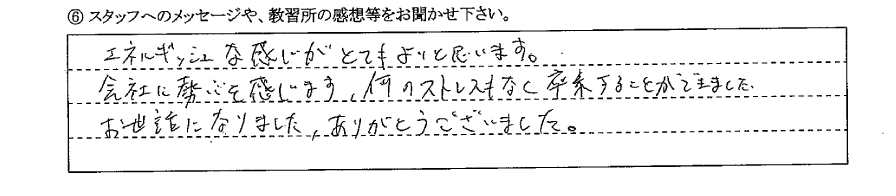 ⑥ スタッフへのメッセージや、教習所の感想等をお聞かせ下さい。
エネルギッシュな感じがとてもよいと思います。
会社に勢いを感じます、何のストレスもなく卒業することができました.
お世話になりました,ありがとうございました。